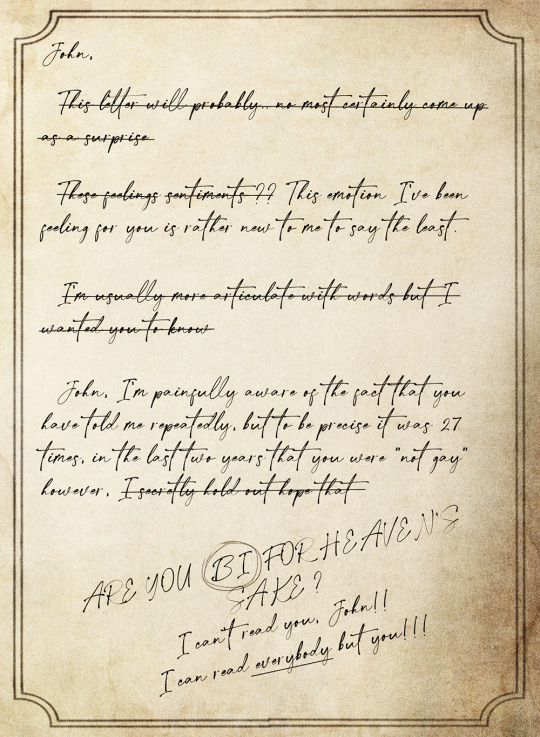 John,
This letter will probably.. no most certainly come up
as a surprise
These feelings sentiments ?? This emotion I've been
feeling for you is rather new to me to say the least.
I'm usually more articulate with words but I
wanted you to know
John, I'm painfully aware of the fact that you
have told me repeatedly, but to be precise it was 27
times, in the last two years that you were "not gay"
however, I secretly hold out hope that
ARE YOU BI FOR HEAVEN'S
SAKE ?
I can't read you, John!!
I can read everybody but you!!!